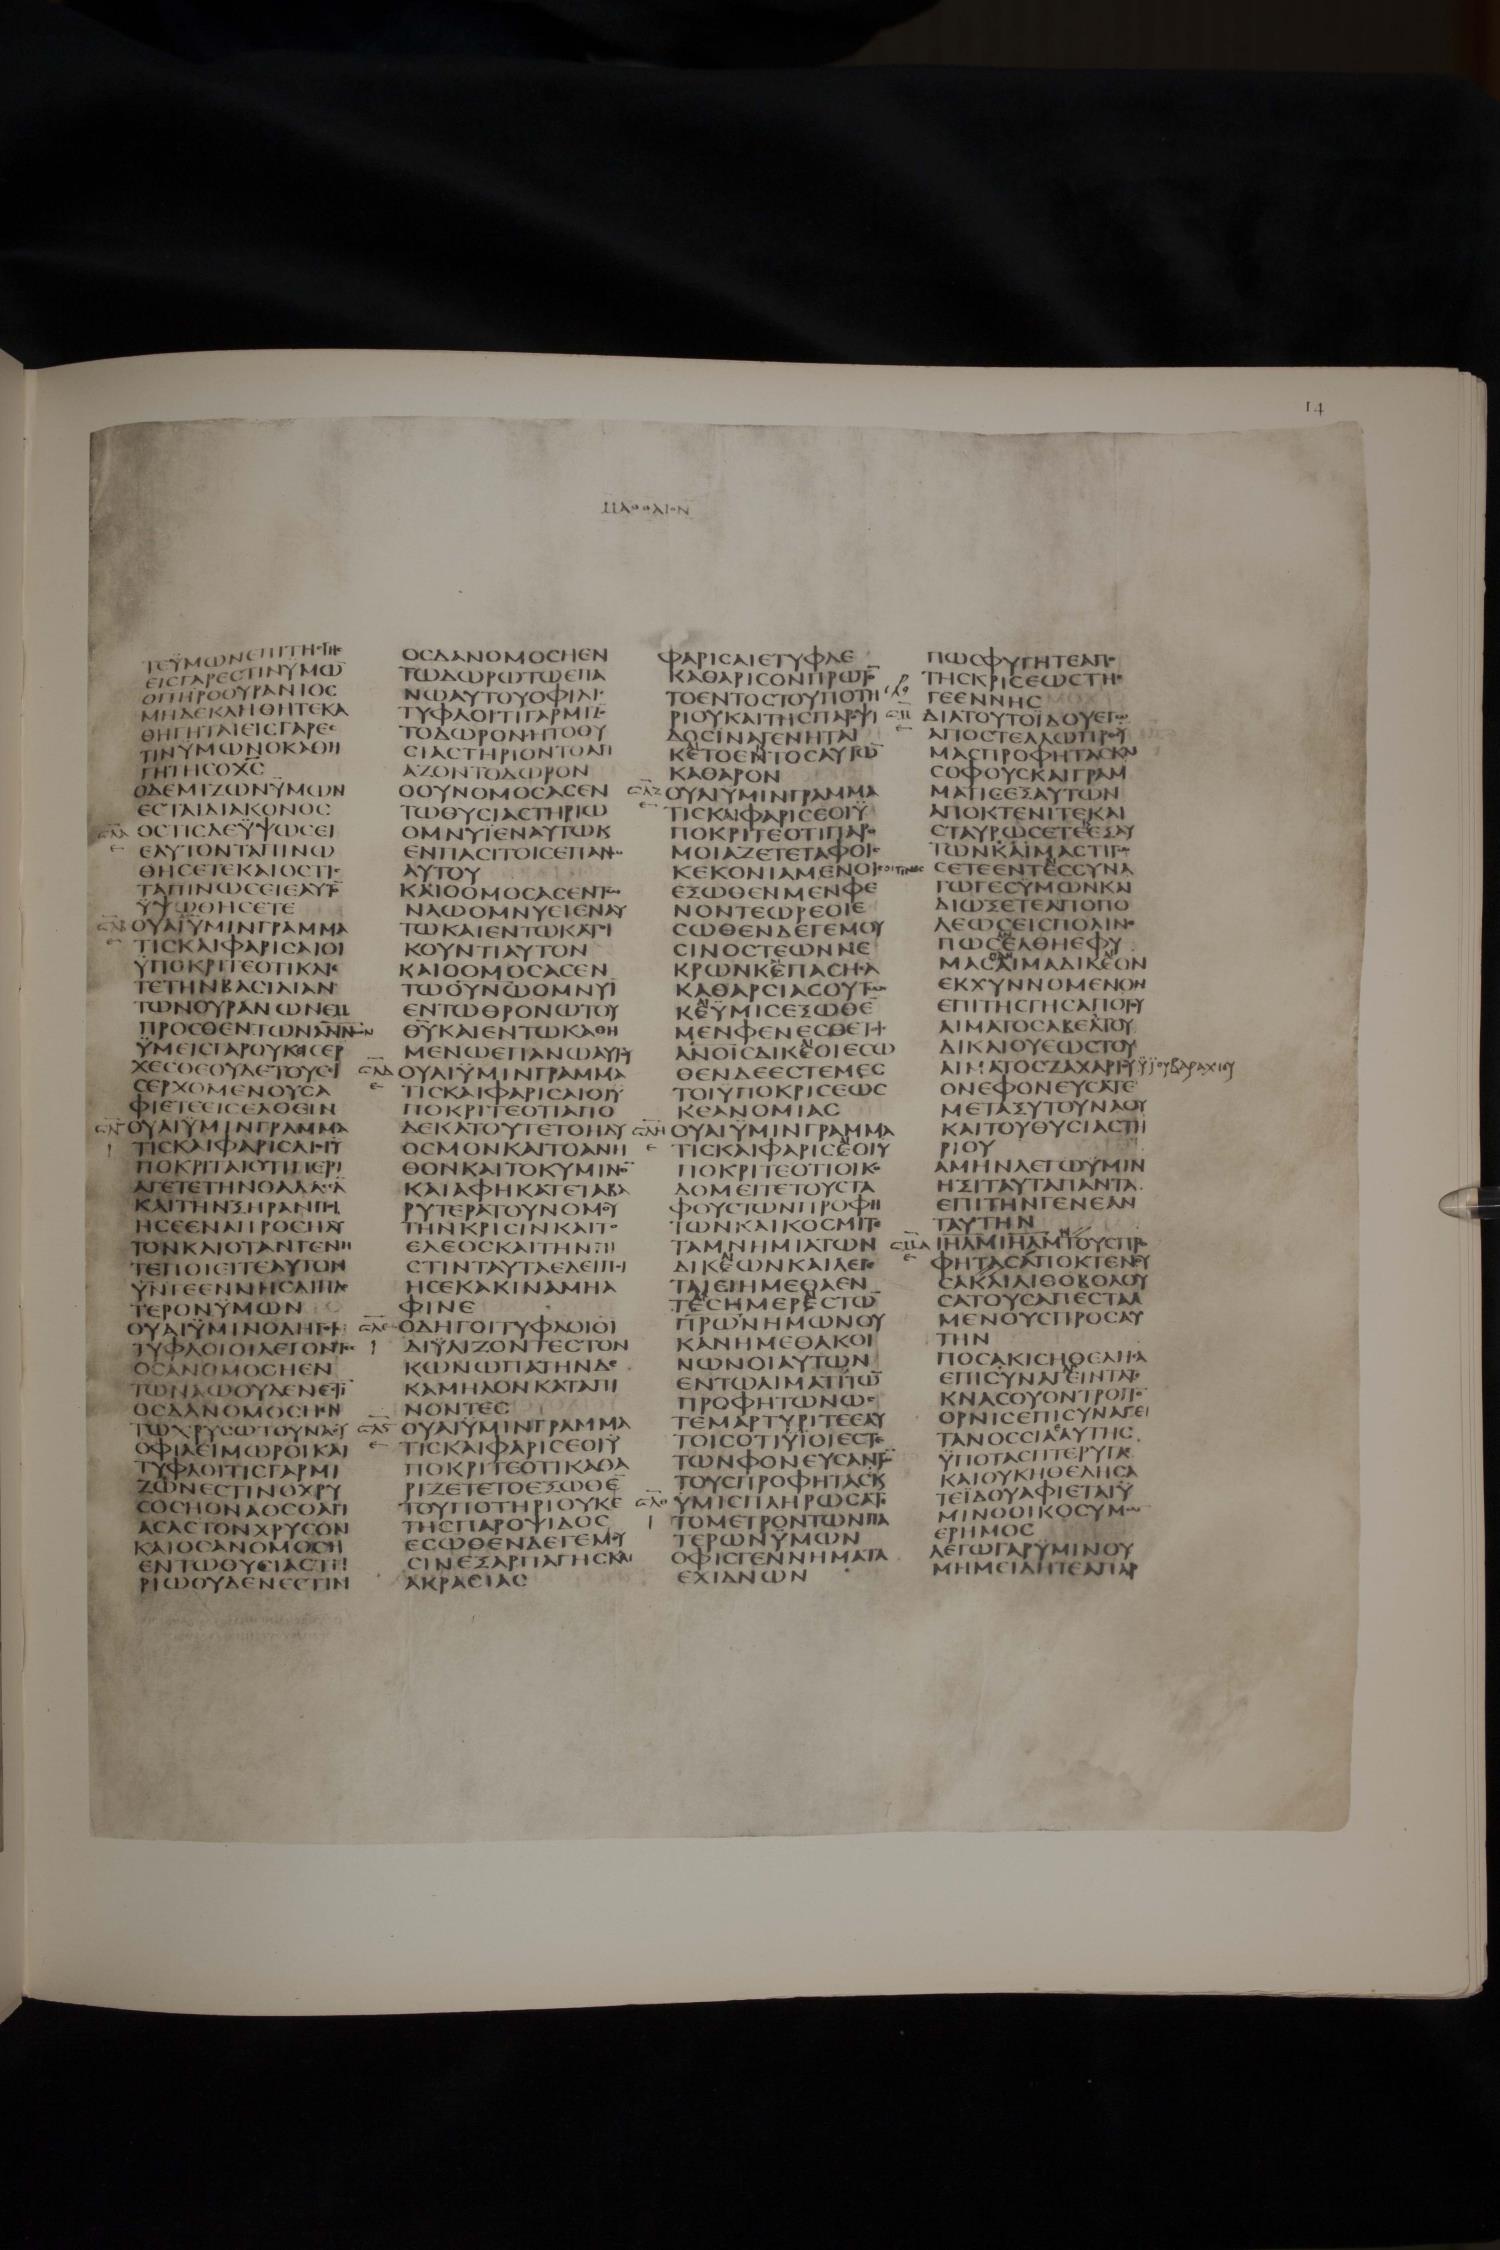 14
ΜΑΘΘΑΙΟΝ
ΤΕΫΜΩΝΕΠΙΤΗΣΓΗΣ
ΕΙΣΓΑΡΕΣΤΙΝΫΜΩ̅
ΟΠΗΡΟΟΥΡΑΝΙΟΣ
ΜΗΔΕΚΛΗΘΗΤΕΚΑ
ΘΗΓΗΤΑΙΕΙΣΓΑΡΕΣ
ΤΙΝΫΜΩΝΟΚΑΘΗ
ΓΗΤΗΣΟΧ̅Σ̅
ΟΔΕΜΙΖΩΝΫΜΩΝ
ΕΣΤΑΙΔΙΑΚΟΝΟΣ
ΟΣΤΙΣΔΕΫΨΩΣΕΙ
ΕΑΥΤΟΝΤΑΠΙΝΩ
ΘΗΣΕΤΕΚΑΙΟΣΤΙΣ
ΤΑΠΙΝΩΣΕΙΕΑΥΤΟ̅
ΫΨΩΘΗΣΕΤΕ
ΟΥΑΙΫΜΙΝΓΡΑΜΜΑ
ΤΙΣΚΑΙΦΑΡΙΣΑΙΟΙ
ΫΠΟΚΡΙΤΕΟΤΙΚΛΙ
ΤΕΤΗΝΒΑΣΙΛΙΑΝ
ΤΩΝΟΥΡΑΝΩΝΕΜ
ΠΡΟΣΘΕΝΤΩΝΑΝΩΝ
ΫΜΕΙΣΓΑΡΟΥΚΕΙΣΕΡ
ΧΕΣΘΕΟΥΔΕΤΟΥΣΕΙ
ΣΕΡΧΟΜΕΝΟΥΣΑ
ΦΙΕΤΕΕΙΣΕΛΘΕΙΝ
ΟΥΑΙΫΜΙΝΓΡΑΜΜΑ
ΤΙΣΚΑΙΦΑΡΙΣΑΙΟΙΫ
ΠΟΚΡΙΤΑΙΟΤΙΠΕΡΙ
ΑΓΕΤΕΤΗΝΘΑΛΑΣΣΑ̅
ΚΑΙΤΗΝΞΗΡΑΝΠΟΙ
ΗΣΕΕΝΑΠΡΟΣΗΛΥ
ΤΟΝΚΑΙΟΤΑΝΓΕΝΗ
ΤΕΠΟΙΕΙΤΕΑΥΤΟΝ
ΫΝΓΕΕΝΝΗΣΔΙΠΛΟ
ΤΕΡΟΝΫΜΩΝ
ΟΥΑΙΫΜΙΝΟΔΗΓΟΙ
ΤΥΦΛΟΙΟΙΛΕΓΟΝΤΕΣ
ΟΣΑΝΟΜΟΣΗΕΝ
ΤΩΝΑΩΟΥΔΕΝΕΣΤΙ̅
ΟΣΔΑΝΟΜΟΣΗΕΝ
ΤΩΧΡΥΣΩΤΟΥΝΑΟΥ
ΟΦΙΛΕΙΜΩΡΟΙΚΑΙ
ΤΥΦΛΟΙΤΙΣΓΑΡΜΙ
ΖΩΝΕΣΤΙΝΟΧΡΥ
ΣΟΣΗΟΝΑΟΣΟΑΓΙ
ΑΣΑΣΤΟΝΧΡΥΣΟΝ
ΚΑΙΟΣΑΝΟΜΟΣΗ
ΕΝΤΩΘΥΣΙΑΣΤΗ
ΡΙΩΟΥΔΕΝΕΣΤΙΝ
ΟΣΔΑΝΟΜΟΣΗΕΝ
ΤΩΔΩΡΩΤΩΕΠΑ
ΝΩΑΥΤΟΥΟΦΙΛΙ
ΤΥΦΛΟΙΤΙΓΑΡΜΙΖΟ̅
ΤΟΔΩΡΟΝΗΤΟΘΥ
ΣΙΑΣΤΗΡΙΟΝΤΟΑΓΙ
ΑΖΟΝΤΟΔΩΡΟΝ
ΟΟΥΝΟΜΟΣΑΣΕΝ
ΤΩΘΥΣΙΑΣΤΗΡΙΩ
ΟΜΝΥΪΕΝΑΥΤΩΚ
ΕΝΠΑΣΙΤΟΙΣΕΠΑΝΩ
ΑΥΤΟΥ
ΚΑΙΟΟΜΟΣΑΣΕΝΤΩ
ΝΑΩΟΜΝΥΕΙΕΝΑΥ
ΤΩΚΑΙΕΝΤΩΚΑΤΟΙ
ΚΟΥΝΤΙΑΥΤΟΝ
ΚΑΙΟΟΜΟΣΑΣΕΝ
ΤΩΟΥΝΩΟΜΝΥΪ
ΕΝΤΩΘΡΟΝΩΤΟΥ
Θ̅Υ̅ΚΑΙΕΝΤΩΚΑΘΗ
ΜΕΝΩΕΠΑΝΩΑΥΤΟΥ
ΟΥΑΙΫΜΙΝΓΡΑΜΜΑ
ΤΙΣΚΑΙΦΑΡΙΣΑΙΟΙΫ
ΠΟΚΡΙΤΕΟΤΙΑΠΟ
ΔΕΚΑΤΟΥΤΕΤΟΗΔΥ
ΟΣΜΟΝΚΑΙΤΟΑΝΗ
ΘΟΝΚΑΙΤΟΚΥΜΙΝΟ̅
ΚΑΙΑΦΗΚΑΤΕΤΑΒΑ
ΡΥΤΕΡΑΤΟΥΝΟΜΟΥ
ΤΗΝΚΡΙΣΙΝΚΑΙΤΟ
ΕΛΕΟΣΚΑΙΤΗΝΠΙ
ΣΤΙΝΤΑΥΤΑΕΔΕΙΠΟΙ
ΗΣΕΚΑΚΙΝΑΜΗΑ
ΦΙΝΕ
ΟΔΗΓΟΙΤΥΦΛΟΙΟΙ
ΔΙΫΛΙΖΟΝΤΕΣΤΟΝ
ΚΩΝΩΠΑΤΗΝΔΕ
ΚΑΜΗΛΟΝΚΑΤΑΠΙ
ΝΟΝΤΕΣ
ΟΥΑΙΫΜΙΝΓΡΑΜΜΑ
ΤΙΣΚΑΙΦΑΡΙΣΕΟΙΫ
ΠΟΚΡΙΤΕΟΤΙΚΑΘΑ
ΡΙΖΕΤΕΤΟΕΞΩΘΕ̅
ΤΟΥΠΟΤΗΡΙΟΥΚΕ
ΤΗΣΠΑΡΟΨΙΔΟΣ
ΕΣΩΘΕΝΔΕΓΕΜΟΥ
ΣΙΝΕΞΑΡΠΑΓΗΣΚΑΙ
ΑΚΡΑΣΙΑΣ
ΦΑΡΙΣΑΙΕΤΥΦΛΕ
ΚΑΘΑΡΙΣΟΝΠΡΩΤΟ̅
ΤΟΕΝΤΟΣΤΟΥΠΟΤΗ
ΡΙΟΥΚΑΙΤΗΣΠΑΡΟΨΙ
ΔΟΣΙΝΑΓΕΝΗΤΑΙ
ΚΕΤΟΕΝΤΟΣΑΥΤΟΥ
ΚΑΘΑΡΟΝ
ΟΥΑΙΫΜΙΝΓΡΑΜΜΑ
ΤΙΣΚΑΙΦΑΡΙΣΕΟΙΫ
ΠΟΚΡΙΤΕΟΤΙΠΑΡΟ
ΜΟΙΑΖΕΤΕΤΑΦΟΙΣ
ΚΕΚΟΝΙΑΜΕΝΟΙΣΟΙΤΙΝΕΣ
ΕΞΩΘΕΝΜΕΝΦΕ
ΝΟΝΤΕΩΡΕΟΙΕ
ΣΩΘΕΝΔΕΓΕΜΟΥ
ΣΙΝΟΣΤΕΩΝΝΕ
ΚΡΩΝΚΕΠΑΣΗΣΑ
ΚΑΘΑΡΣΙΑΣΟΥΤΩΣ
ΚΕΫΜΙΣΕΞΩΘΕ̅
ΜΕΝΦΕΝΕΣΘΕΤΟΙΣ
ΑΝΟΙΣΔΙΚΕΟΙΕΣΩ
ΘΕΝΔΕΕΣΤΕΜΕΣ
ΤΟΙΫΠΟΚΡΙΣΕΩΣ
ΚΕΑΝΟΜΙΑΣ
ΟΥΑΙΫΜΙΝΓΡΑΜΜΑ
ΤΙΣΚΑΙΦΑΡΙΣΕΟΙΫ
ΠΟΚΡΙΤΕΟΤΙΟΙΚΟ
ΔΟΜΕΙΤΕΤΟΥΣΤΑ
ΦΟΥΣΤΩΝΠΡΟΦΗ
ΤΩΝΚΑΙΚΟΣΜΙΤΕ
ΤΑΜΝΗΜΙΑΤΩΝ
ΔΙΚΕΩΝΚΑΙΛΕΓΕ
ΤΑΙΕΙΗΜΕΘΑΕΝ
ΤΕΣΗΜΕΡΕΣΤΩ̅
ΠΡΩΝΗΜΩΝΟΥ
ΚΑΝΗΜΕΘΑΚΟΙ
ΝΩΝΟΙΑΥΤΩΝ
ΕΝΤΩΑΙΜΑΤΙΤΩ̅
ΠΡΟΦΗΤΩΝΩΣ
ΤΕΜΑΡΤΥΡΙΤΕΕΑΥ
ΤΟΙΣΟΤΙΫΪΟΙΕΣΤΕ
ΤΩΝΦΟΝΕΥΣΑΝΤΩ̅
ΤΟΥΣΠΡΟΦΗΤΑΣΚ
ΫΜΙΣΠΛΗΡΩΣΑΤΕ
ΤΟΜΕΤΡΟΝΤΩΝΠΑ
ΤΕΡΩΝΫΜΩΝ
ΟΦΙΣΓΕΝΝΗΜΑΤΑ
ΕΧΙΔΝΩΝ
ΠΩΣΦΥΓΗΤΕΑΠΟ
ΤΗΣΚΡΙΣΕΩΣΤΗΣ
ΓΕΕΝΝΗΣ
ΔΙΑΤΟΥΤΟΪΔΟΥΕΓΩ
ΑΠΟΣΤΕΛΛΩΠΡΟΥ
ΜΑΣΠΡΟΦΗΤΑΣΚΑΙ
ΣΟΦΟΥΣΚΑΙΓΡΑΜ
ΜΑΤΙΣΕΞΑΥΤΩΝ
ΑΠΟΚΤΕΝΙΤΕΚΑΙ
ΣΤΑΥΡΩΣΕΤΕΕΞΑΥ
ΤΩΝΚΑΙΜΑΣΤΙΓΩ
ΣΕΤΕΕΝΤΕΣΣΥΝΑ
ΓΩΓΕΣΫΜΩΝΚΑΙ
ΔΙΩΞΕΤΕΑΠΟΠΟ
ΛΕΩΣΕΙΣΠΟΛΙΝΟ
ΠΩΣΕΛΘΗΕΦΥ
ΜΑΣΑΙΜΑΔΙΚΕΟΝ
ΕΚΧΥΝΝΟΜΕΝΟΝ
ΕΠΙΤΗΣΓΗΣΑΠΟΤΟΥ
ΑΙΜΑΤΟΣΑΒΕΛΤΟΥ
ΔΙΚΑΙΟΥΕΩΣΤΟΥ
ΑΙΜΑΤΟΣΖΑΧΑΡΙΟΥ ΫΪΟΥΒΑΡΑΧΙΟΥ
ΟΝΕΦΟΝΕΥΣΑΤΕ
ΜΕΤΑΞΥΤΟΥΝΑΟΥ
ΚΑΙΤΟΥΘΥΣΙΑΣΤΗ
ΡΙΟΥ
ΑΜΗΝΛΕΓΩΫΜΙΝ
ΗΞΙΤΑΥΤΑΠΑΝΤΑ
ΕΠΙΤΗΝΓΕΝΕΑΝ
ΤΑΥΤΗΝ
ΙΗΛΜΙΗΛΜΤΟΥΣΠΡΟ
ΦΗΤΑΣΑΠΟΚΤΕΝΟΥ
ΣΑΚΑΙΛΙΘΟΒΟΛΟΥ
ΣΑΤΟΥΣΑΠΕΣΤΑΛ
ΜΕΝΟΥΣΠΡΟΣΑΥ
ΤΗΝ
ΠΟΣΑΚΙΣΗΘΕΛΗΣΑ
ΕΠΙΣΥΝΑΓΕΙΝΤΑΤΕ
ΚΝΑΣΟΥΟΝΤΡΟΠΟ̅
ΟΡΝΙΣΕΠΙΣΥΝΑΓΕΙ
ΤΑΝΟΣΣΙΑΑΥΤΗΣ
ΫΠΟΤΑΣΠΤΕΡΥΓΑΣ
ΚΑΙΟΥΚΗΘΕΛΗΣΑ
ΤΕΪΔΟΥΑΦΙΕΤΑΙΫ
ΜΙΝΟΟΙΚΟΣΥΜΩΝ
ΕΡΗΜΟΣ
ΛΕΓΩΓΑΡΫΜΙΝΟΥ
ΜΗΜΕΙΔΗΤΕΑΠΑΡ